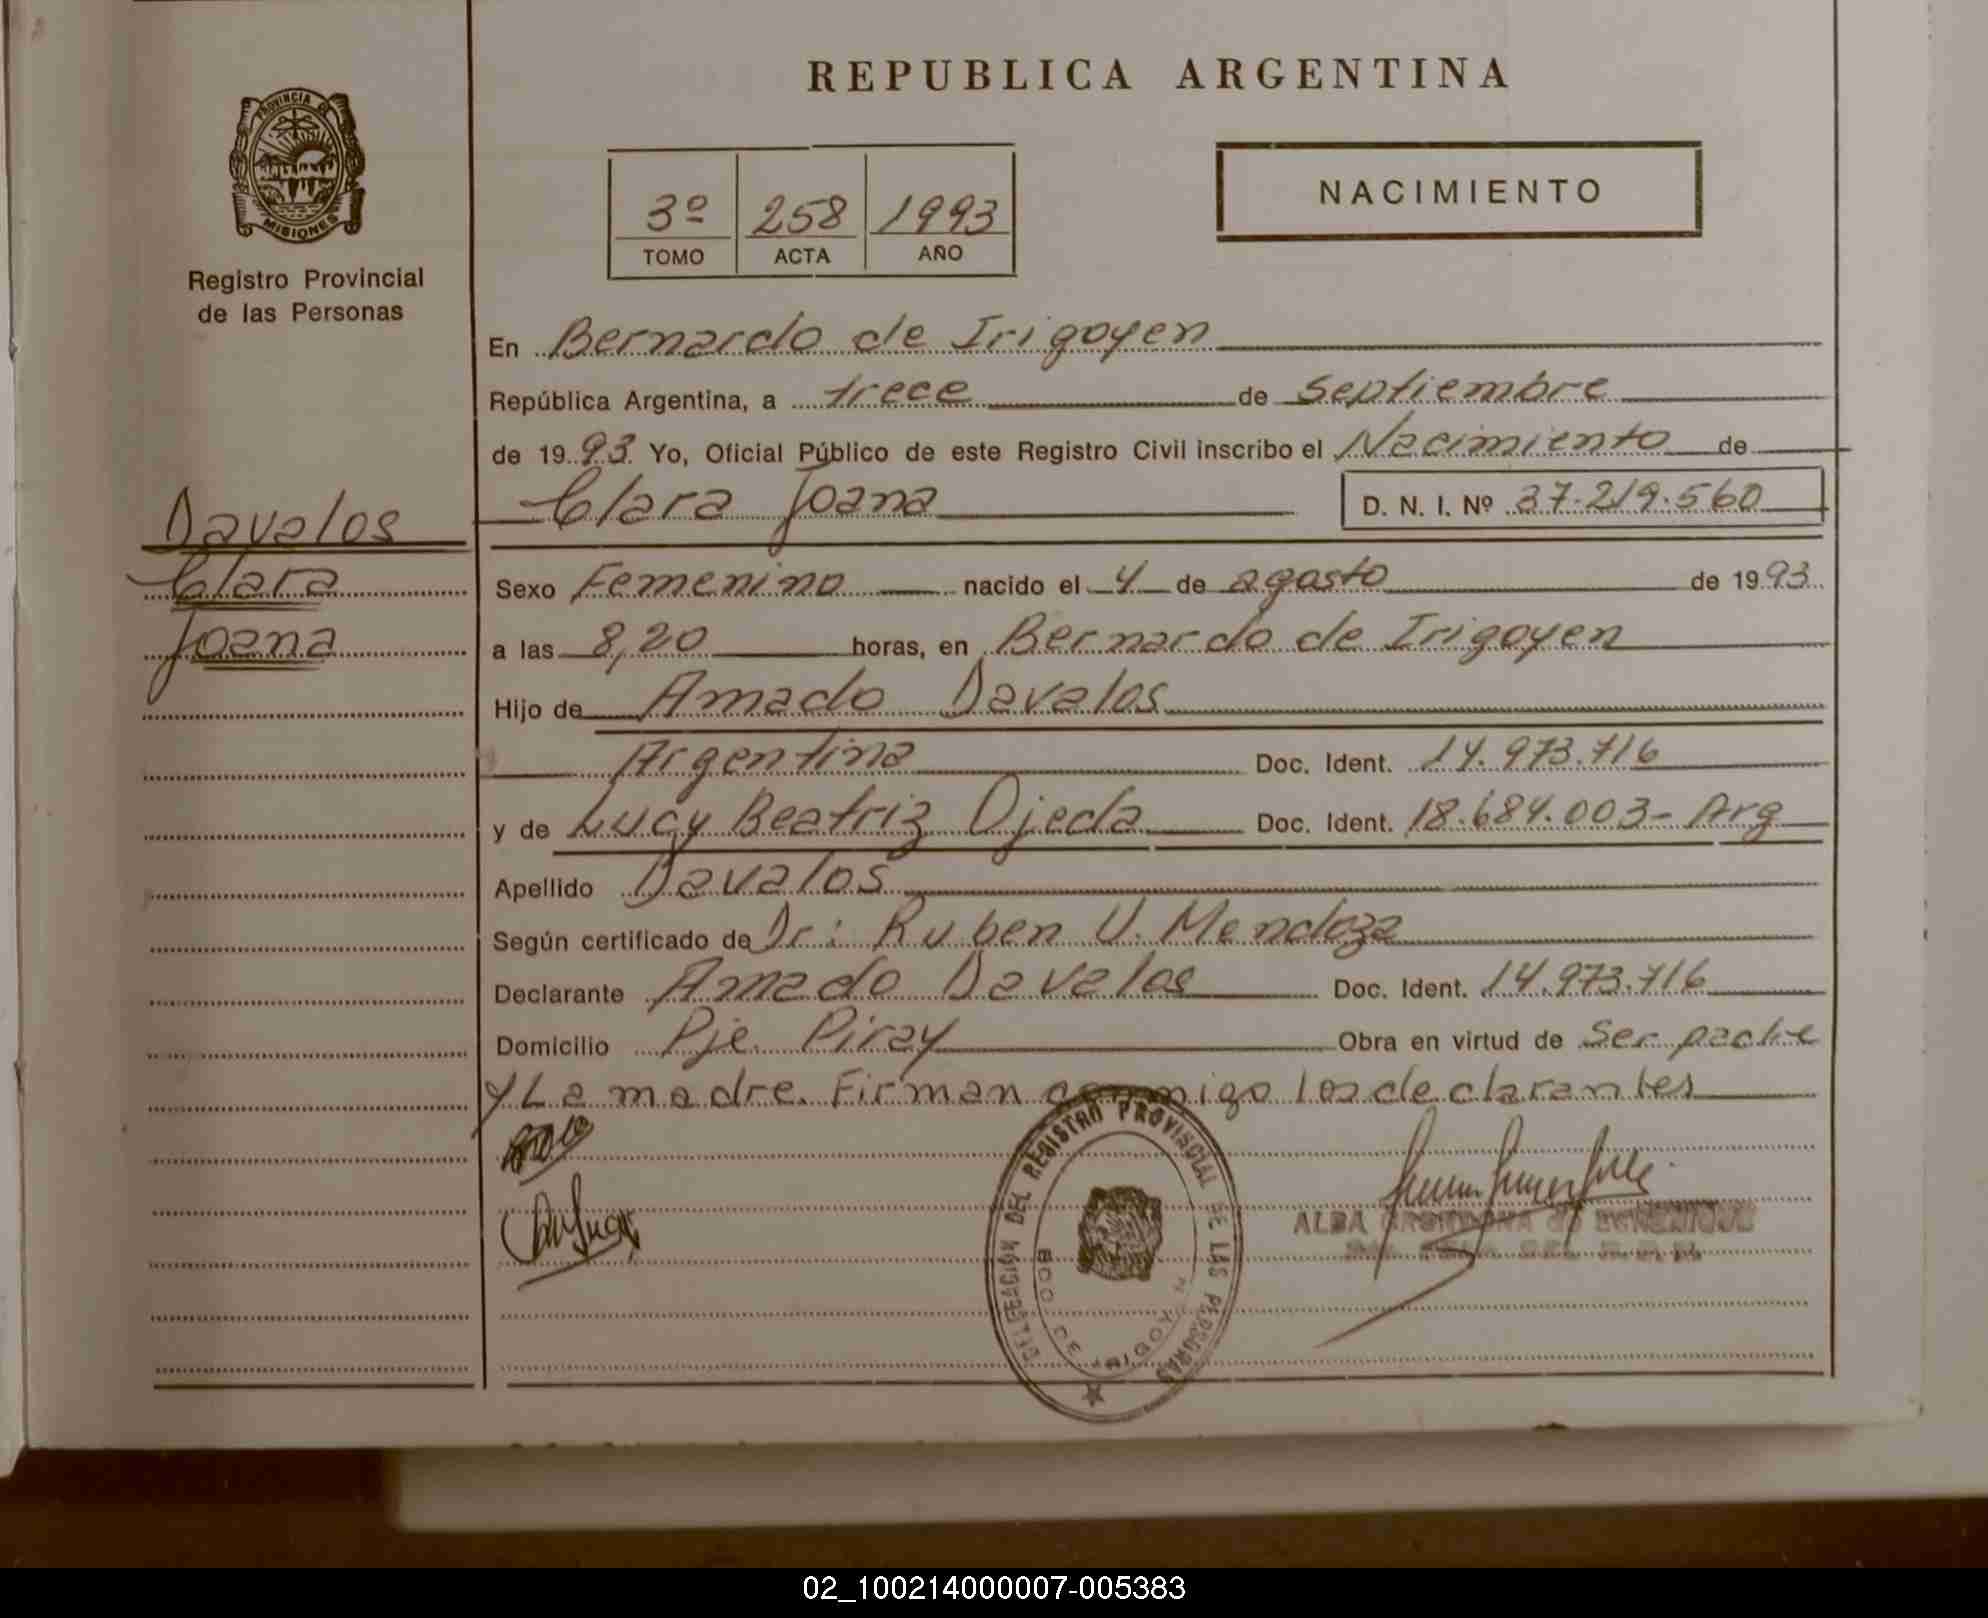 REPUBLICA ARGENTINA
PROVINCIA DE
MISIONES
Registro Provincial
de las Personas
3º 258 1993
TOMO ACTA AÑO
NACIMIENTO
En Bernardo de Irigoyen
República Argentina, a trece de Septiembre
de 1993 Yo, Oficial Público de este Registro Civil inscribo el Nacimiento de
Clara Joana D. N. I. Nº 37.219.560
Davalos
Clara
Joana
Sexo Femenino nacido el 4 de agosto de 1993
a las 8,20 horas, en Bernardo de Irigoyen
Hijo de Amado Davalos
Argentina Doc. Ident. 14.973.716
y de Lucy Beatriz Ojeda Doc. Ident. 18.684.003- Arg
Apellido Davalos
Según certificado de Dr: Ruben U. Mendoza
Declarante Amado Davalos Doc. Ident. 14.973.716
Domicilio Pje. Piray Obra en virtud de Ser padre
y La madre. Firman conmigo los declarantes
DELEGACIÓN DEL REGISTRO PROVINCIAL DE LAS PERSONAS
BDO DE IRIGOYEN
ALBA
02_100214000007-005383